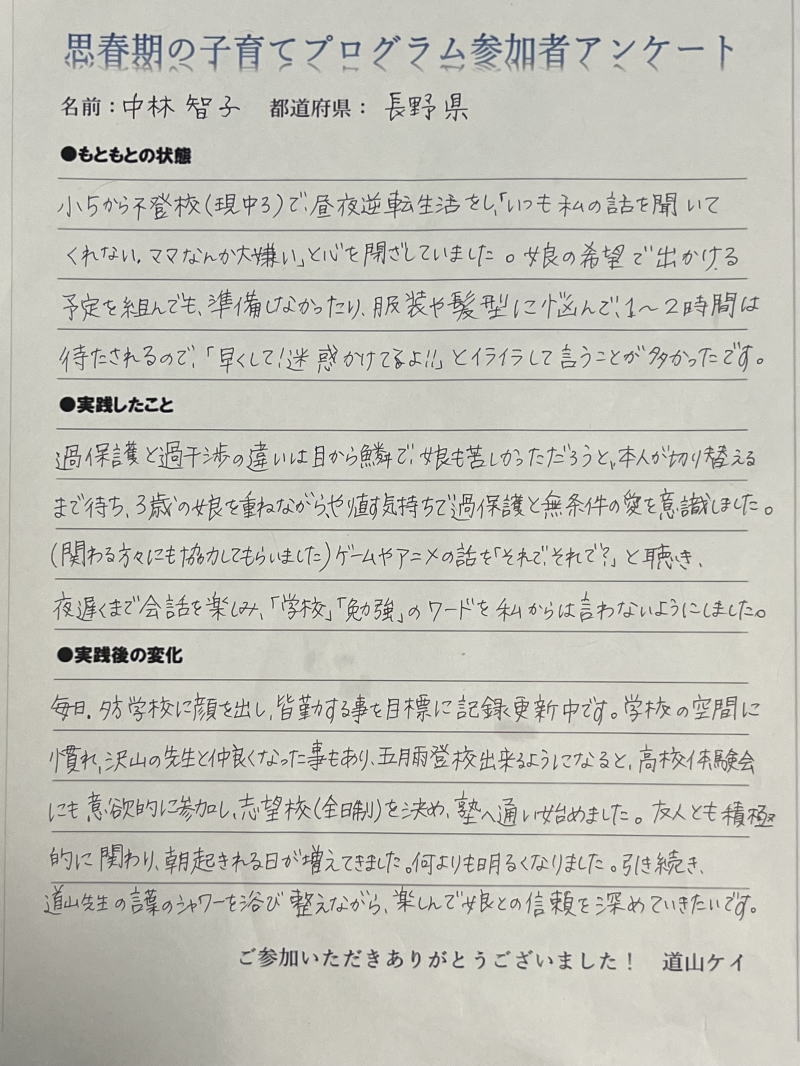 思春期の子育てプログラム参加者アンケート
名前：中林 智子　都道府県： 長野県
●もともとの状態
小5から不登校(現中3)で、昼夜逆転生活をし、「いつも私の話を聞いて
くれない。ママなんか大嫌い」と心を閉ざしていました。娘の希望で出かける
予定を組んでも、準備しなかったり、服装や髪型に悩んで、1〜2時間は
待たされるので、「早くして!迷惑かけてるよ!!」とイライラして言うことが多かったです。
●実践したこと
過保護と過干渉の違いは目から鱗で、娘も苦しかっただろうと、本人が切り替える
まで待ち、3歳の娘を重ねながら、やり直す気持ちで過保護と無条件の愛を意識しました。
(関わる方々にも協力してもらいました)ゲームやアニメの話を「それで、それで?」と聴き、
夜遅くまで会話を楽しみ、「学校」「勉強」のワードを私からは言わないようにしました。
●実践後の変化
毎日、夕方学校に顔を出し、皆勤する事を目標に記録更新中です。学校の空間に
慣れ、沢山の先生と仲良くなった事もあり、五月雨登校出来るようになると、高校体験会
にも意欲的に参加し、志望校(全日制)を決め、塾へ通い始めました。友人とも積極
的に関わり、朝起きれる日が増えてきました。何よりも明るくなりました。引き続き、
道山先生の言葉のシャワーを浴び整えながら、楽しんで娘との信頼を深めていきたいです。
ご参加いただきありがとうございました！　道山ケイ